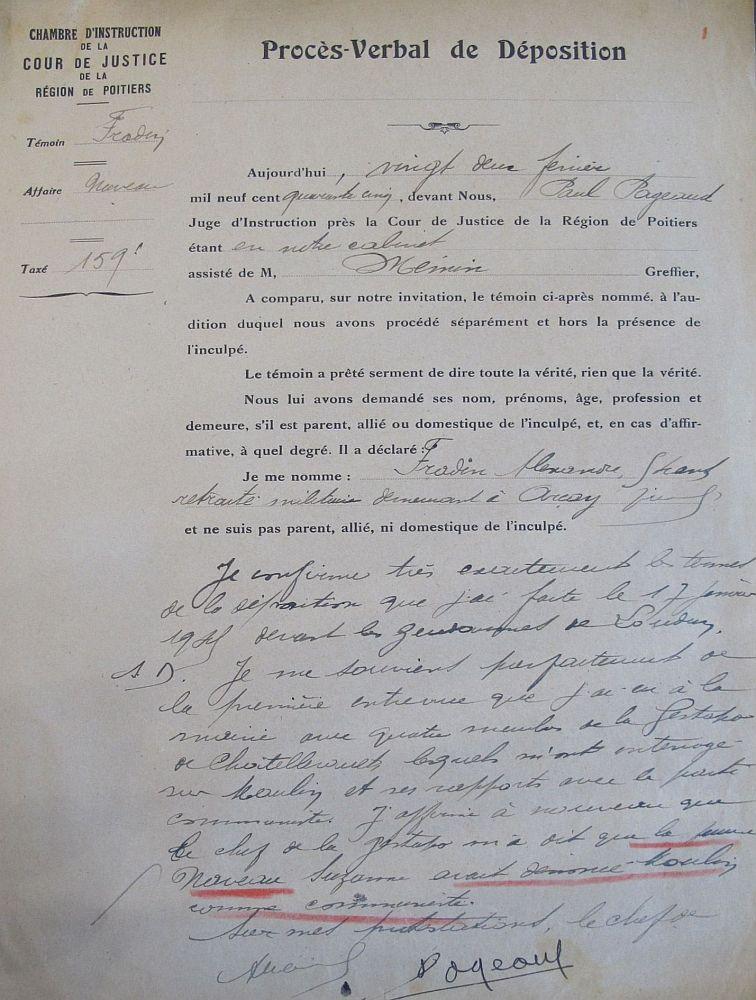 1
CHAMBRE D'INSTRUCTION
DE LA
COUR DE JUSTICE
DE LA
RÉGION DE POITIERS
Témoin Fradin
Affaire Naveau
Taxé 159f
Procès-Verbal de Déposition
Aujourd'hui, vingt deux février
mil neuf cent quarante cinq, devant Nous, Paul Pageaud
Juge d'Instruction près la Cour de Justice de la Région de Poitiers
étant en notre cabinet
assisté de M, Greffier,
A comparu, sur notre invitation, le témoin ci-après nommé. à l'au-
dition duquel nous avons procédé séparément et hors la présence de
l'inculpé.
Le témoin a prêté serment de dire toute la vérité, rien que la vérité.
Nous lui avons demandé ses nom, prénoms, âge, profession et
demeure, s'il est parent, allié ou domestique de l'inculpé, et, en cas d'affir-
mative, à quel degré. Il a déclaré :
Je me nomme : Fradin Alexandre,
retraité militaire demeurant à Arçay
et ne suis pas parent, allié, ni domestique de l'inculpé.
Je confirme très exactement les termes
de la déposition que j'ai faite le 17 janvier
1945 devant les gendarmes de Loudun.
S. D. Je me souviens parfaitement de
la première entrevue que j'ai eu à la
mairie avec quatre membres de la Gestapo
de Chatellerault lesquels m'ont interrogé
sur Moulin et ses rapports avec le parti
communiste. J'affirme à nouveau que
le chef de la gestapo m'a dit que la femme
Naveau Suzanne avait dénoncé Moulin
comme communiste.
Sur mes protestations, le chef de
Pageaud